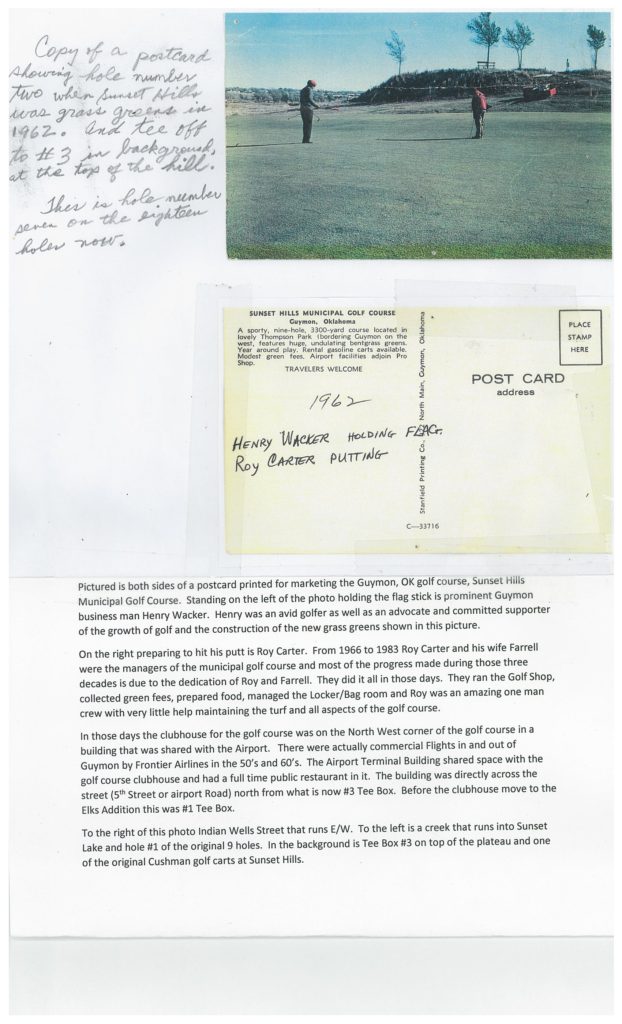 Copy of a postcard
showing hole number
two when Sunset Hills
was grass greens in
1962. And tee off
to #3 in background,
at the top of the hill.
This is hole number
seven on the eighteen
holes now.
SUNSET HILLS MUNICIPAL GOLF COURSE
Guymon, Oklahoma
A sporty, nine-hole, 3300-yard course located in
lovely Thompson Park (bordering Guymon on the
west, features huge, undulating bentgrass greens.
Year around play. Rental gasoline carts available.
Modest green fees. Airport facilities adjoin Pro
Shop.
TRAVELERS WELCOME
1962
HENRY WACKER HOLDING FLAG.
ROY CARTER PUTTING
Stanfield Printing Co., North Main, Guymon, Oklahoma
C—33716
PLACE
STAMP
HERE
POST CARD
address
Pictured is both sides of a postcard printed for marketing the Guymon, OK golf course, Sunset Hills
Municipal Golf Course. Standing on the left of the photo holding the flag stick is prominent Guymon
business man Henry Wacker. Henry was an avid golfer as well as an advocate and committed supporter
of the growth of golf and the construction of the new grass greens shown in this picture.
On the right preparing to hit his putt is Roy Carter. From 1966 to 1983 Roy Carter and his wife Farrell
were the managers of the municipal golf course and most of the progress made during those three
decades is due to the dedication of Roy and Farrell. They did it all in those days. They ran the Golf Shop,
collected green fees, prepared food, managed the Locker/Bag room and Roy was an amazing one man
crew with very little help maintaining the turf and all aspects of the golf course.
In those days the clubhouse for the golf course was on the North West corner of the golf course in a
building that was shared with the Airport. There were actually commercial Flights in and out of
Guymon by Frontier Airlines in the 50's and 60's. The Airport Terminal Building shared space with the
golf course clubhouse and had a full time public restaurant in it. The building was directly across the
street (5th Street or airport Road) north from what is now #3 Tee Box. Before the clubhouse move to the
Elks Addition this was #1 Tee Box.
To the right of this photo Indian Wells Street that runs E/W. To the left is a creek that runs into Sunset
Lake and hole #1 of the original 9 holes. In the background is Tee Box #3 on top of the plateau and one
of the original Cushman golf carts at Sunset Hills.